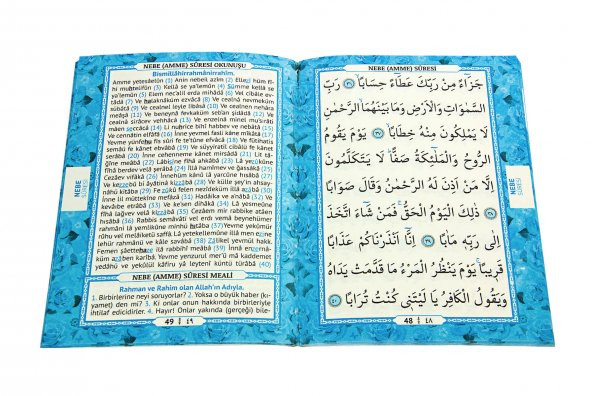 NEBE (AMME) SÛRESİ
جَزَٓاءً مِنْ رَبِّكَ عَطَٓاءً حِسَابًا ﴿٣٦﴾ رَبِّ
السَّمٰوَاتِ وَالْاَرْضِ وَمَا بَيْنَهُمَا الرَّحْمٰنِ
لَا يَمْلِكُونَ مِنْهُ خِطَابًا ﴿٣٧﴾ يَوْمَ يَقُومُ
الرُّوحُ وَالْمَلٰٓئِكَةُ صَفًّا لَا يَتَكَلَّمُونَ
اِلَّا مَنْ اَذِنَ لَهُ الرَّحْمٰنُ وَقَالَ صَوَابًا
﴿٣٨﴾ ذٰلِكَ الْيَوْمُ الْحَقُّ فَمَنْ شَٓاءَ اتَّخَذَ
اِلٰى رَبِّهٖ مَاٰبًا ﴿٣٩﴾ اِنَّٓا اَنْذَرْنَاكُمْ عَذَابًا
قَرِيبًا يَوْمَ يَنْظُرُ الْمَرْءُ مَا قَدَّمَتْ يَدَاهُ
وَيَقُولُ الْكَافِرُ يَا لَيْتَنٖى كُنْتُ تُرَابًا ﴿٤٠﴾
48 ٤٨
NEBE
SÛRESİ
NEBE (AMME) SÛRESİ OKUNUŞU
Bismillâhirrahmânirrahîm.
Amme yetesâelûn (1) Anin nebeil azîm (2) Ellezî hüm fî-
hi muhtelifûn (3) Kellâ se ya'lemûn (4) Sümme kellâ se
ya'lemûn (5) Elem nec'alil erda mihâdâ (6) Vel cibâle ev-
tâdâ (7) Ve halaknâküm ezvâcâ (8) Ve cealnâ nevmeküm
sübâtâ (9) Ve cealnel leyle libâsâ (10) Ve cealnen nehâra
meâşâ (11) Ve beneynâ fevkaküm seb'an şidâdâ (12) Ve
cealnâ sirâcev vehhâcâ (13) Ve enzelnâ minel mu'sırâti
mâen seccâcâ (14) Li nuhrice bihî habbev ve nebâtâ (15)
Ve cennâtin elfâfâ (16) İnne yevmel fasli kâne mîkâtâ (17)
Yevme yünfehu fis sûri fe te'tûne efvâcâ (18) Ve fütihatis
semâü fe kânet ebvâbâ (19) Ve süyyiratil cibâlü fe kânet
serâbâ (20) İnne cehenneme kânet mirsâdâ (21) Lit tâ-
ğîne meâbâ (22) Lâbisîne fîhâ ahkâbâ (23) Lâ yezûkûne
fîhâ berdev velâ şerâbâ (24) İllâ hamîmev ve ğassâkâ (25)
Cezâev vifâkâ (26) İnnehüm kânû lâ yercûne hisâbâ (27)
Ve kezzebû bi âyâtinâ kizzâbâ (28) Ve külle şey'in ahsay-
nâhü kitâbâ (29) Fe zûkû felen nezîdeküm illâ azâbâ (30)
İnne lil müttekîne mefâzâ (31) Hadâika ve a'nâbâ (32) Ve
kevâibe etrâbâ (33) Ve ke'sen dihâkâ (34) Lâ yesmeûne
fîhâ lağvev velâ kizzâbâ (35) Cezâem mir rabbike atâen
hısâbâ (36) Rabbis semâvâti vel erdı vemâ beynehümer
rahmâni lâ yemlikûne minhü hıtâbâ (37) Yevme yekûmür
rûhu vel melâiketü saffâ Lâ yetekellemûne illâ men ezine
lehür rahmânü ve kâle savâbâ (38) Zâlikel yevmül hakk.
Femen şâettehaze ilâ rabbihî meâbâ (39) İnnâ enzernâ-
küm azâben karîbâ. Yevme yenzurul mer'ü mâ kaddemet
yedâhü ve yekûlül kâfiru yâ leytenî küntü türâbâ (40)
NEBE (AMME) SÛRESİ MEALİ
Rahman ve Rahim olan Allah'ın Adıyla.
1. Birbirlerine neyi soruyorlar? 2. Yoksa o büyük haber (kı-
yamet) den mi? 3. Ki onlar onun hakkında birbirleriyle
ihtilaf edicidirler. 4. Hayır! Onlar yakında (gerçeği) bile-
49 ٤٩
NEBE
SÛRESİ